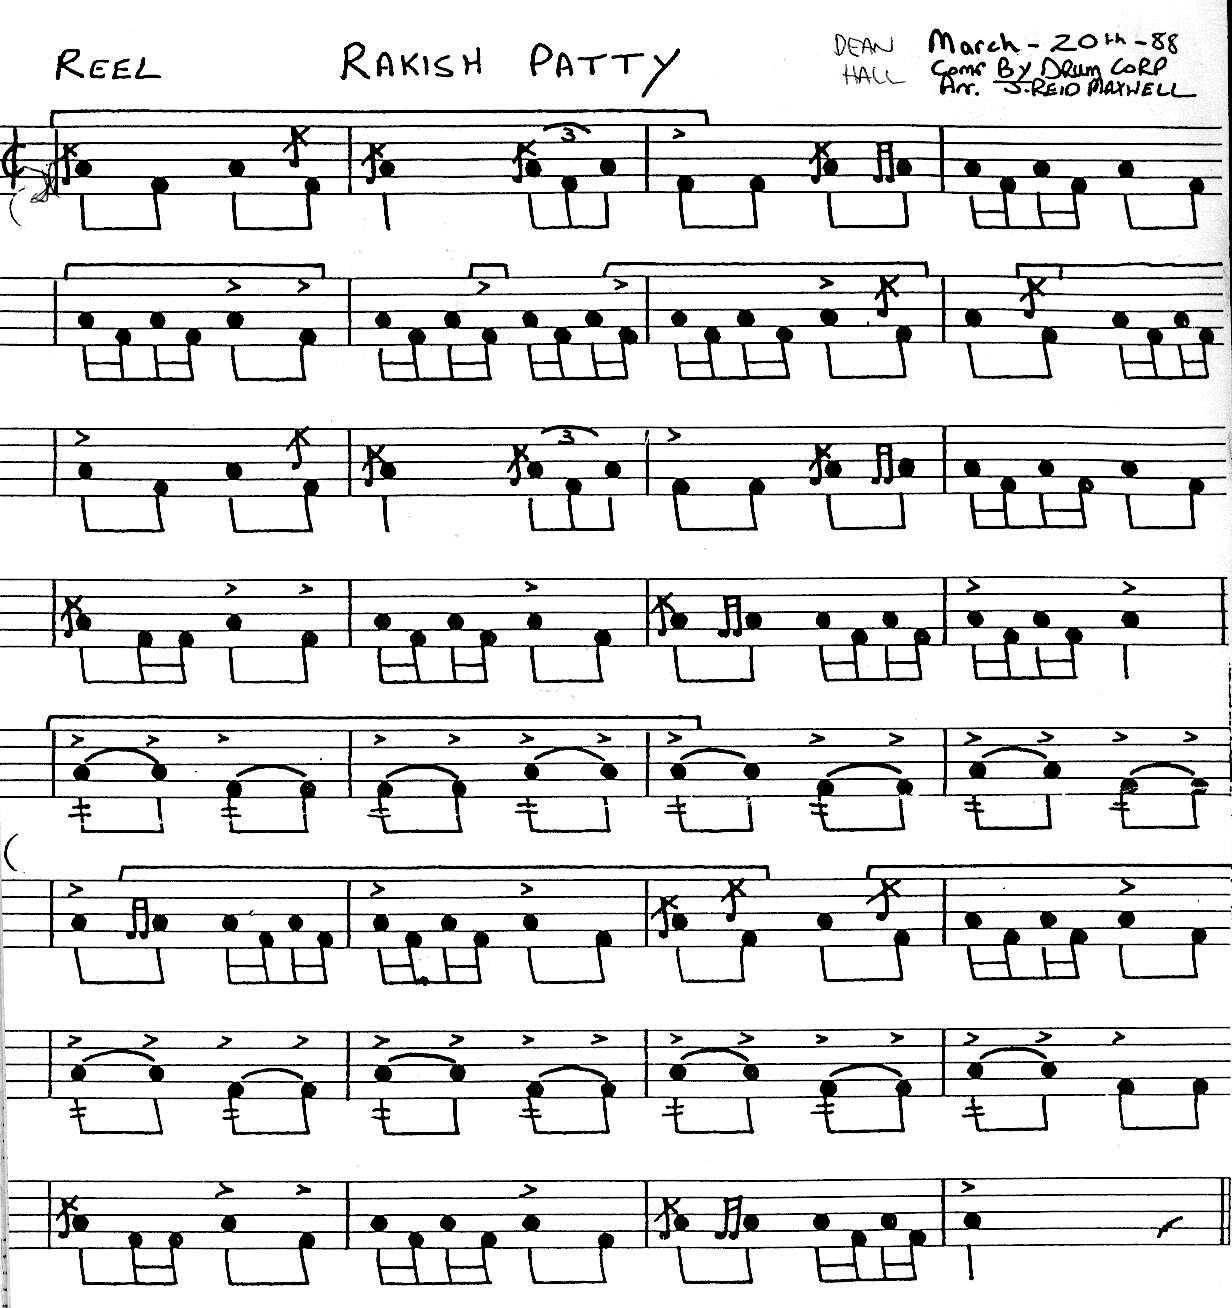 REEL RAKISH PATTY
DEAN HALL
March - 20th - 88
Comp BY DRUM CORP
Arr. J. REID MAXWELL
3
3